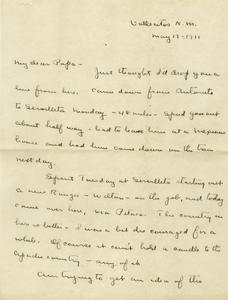 Vallecitos N.M.
May 17-1911
My dear Papa -
Just thought I'd drop you a
line from here. Came down from Antonito
to Servilleta Monday - 48 miles - Spud gave out
about half way - had to leave him at a Mexican
house and had him come down on the train
next day.
Spent Tuesday at Servilleta starting out
a new Ranger - Wilton - on the job, and today
came over here, via Petaca. This country in
here is better - I was a bit discouraged for a
while. Of course it can't hold a candle to the
Apache country - any of it
Am trying to get an idea of the